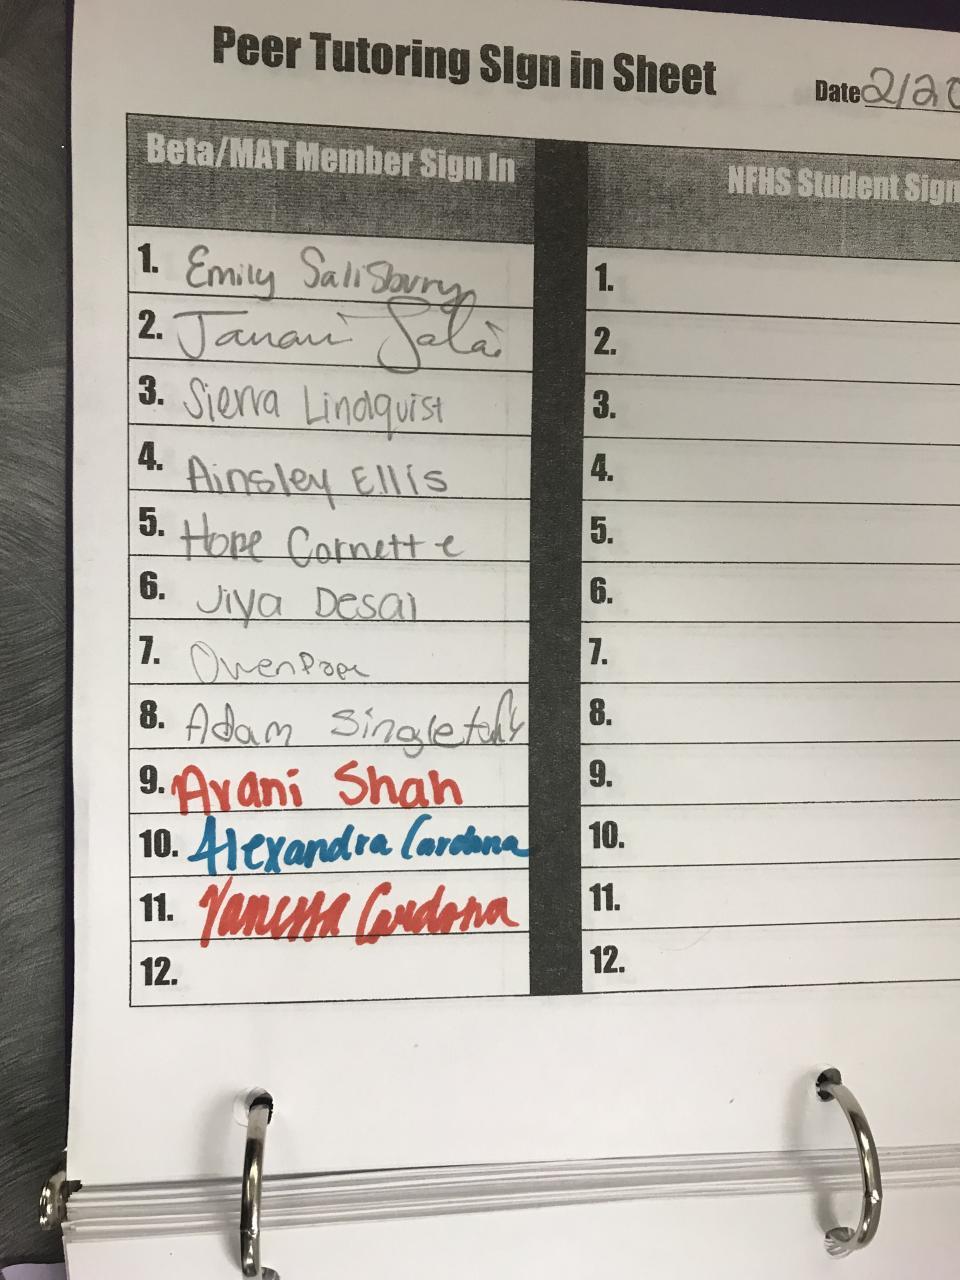 Peer Tutoring SIgn in Sheet
Date 2/20
Beta/MAT Member Sign In
NFHS Student Sign
1. Emily Salisbury
2. Janani
3. Sierra Lindquist
4. Ainsley Ellis
5. Hope Cornette
6. Jiya Desai
7. Owen
8. Adam
9. Avani Shah
10. Alexandra Cardona
11. Vanessa Cardona
12.
1.
2.
3.
4.
5.
6.
7.
8.
9.
10.
11.
12.